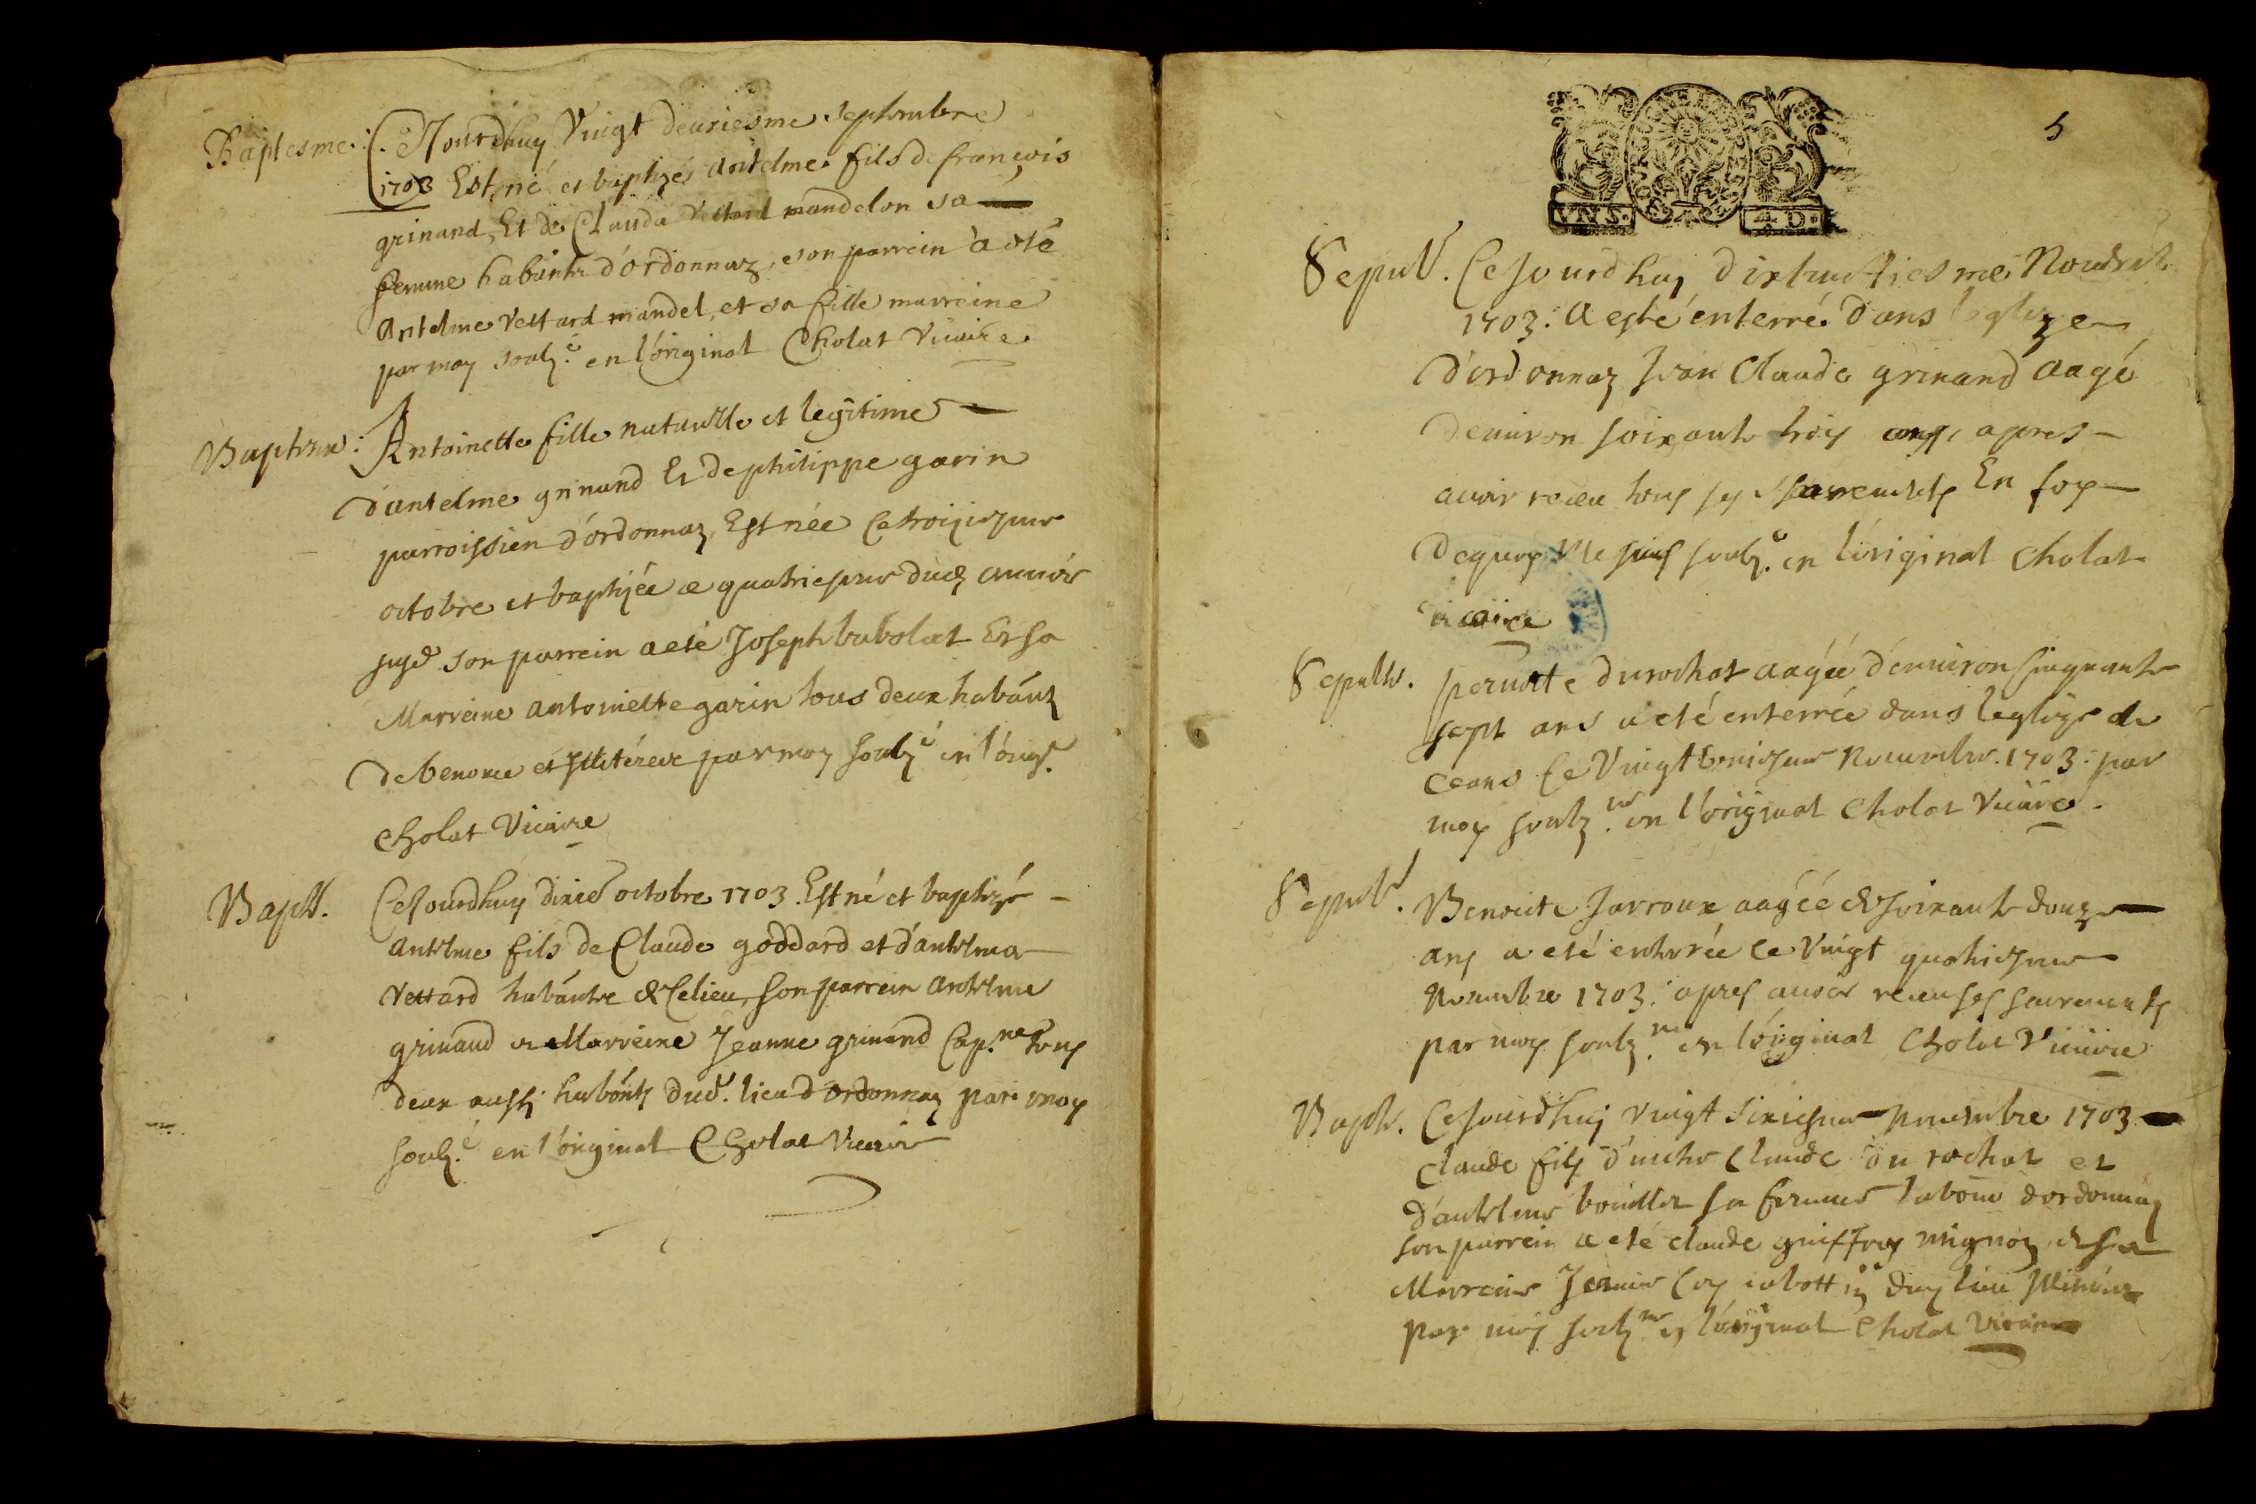 Baptesme: Cejourdhuy Vingt deuxiesme septembre
1703 Est né et baptizé Antelme fils de françois
grinand, Et de Clauda Vettard mandelon sa
femme habantz d'ordonnaz, son parrein a été
Antelme Vettard mandel, et sa fille marreine
par moy soulz.é en l'original Cholat Vicaire
Baptesme: Antoinette fille naturelle et legitime
d'antelme grinand Et de philippe garin
parroissien d'ordonnaz, Est née Ce troizieme
octobre et baptizée ce quatrieme dud
son parrein a eté Joseph bubolat Et sa
Marreine antoinette garin tous deux habantz
de benonce et par moy soulz.é en l'orig.
Cholat Vicaire
Bapt. Cejourdhuy dixie octobre 1703. Est né et baptizé
Antelme fils de Claude goddard et d'antelma
Vettard habantz de Celieu, son parrein Antelme
grinand et Marreine Jeanne grinand tous
deux aussi habantz dud. lieu d'ordonnaz par moy
soulz.é en l'original Cholat Vicaire
5
VNS. 4.D.
Sepult. Cejourdhuy dixhuittiesme
1703. a esté enterré dans leglize
d'ordonnaz Jean Claude grinand aagé
denviron soixante trois ans, apres
avoir receu tous ses sacrements En foy
dequoy Me suis soulz.é en l'original Cholat
vicaire
Sepult. pernette durochat aagée d'environ cinquante
sept ans a eté enterrée dans leglize de
ceans Ce Vingt Novembre 1703. par
moy soulz. en l'original Cholat Vicaire
Sepult. Benoite Jarroux aagée de soixante douze
ans a eté enterrée ce Vingt quatrieme
Novembre 1703. apres avoir receu ses sacrements
par moy soulz. en l'original Cholat Vicaire
Bapt. Cejourdhuy Vingt sixiesme Novembre 1703
Claude fils d'autre Claude du rochat et
d'antelme bouillet sa femme d'ordonnaz
son parrein a eté claude guiffray mignoz et sa
Marreine
par moy soulz. en l'original Cholat Vicaire